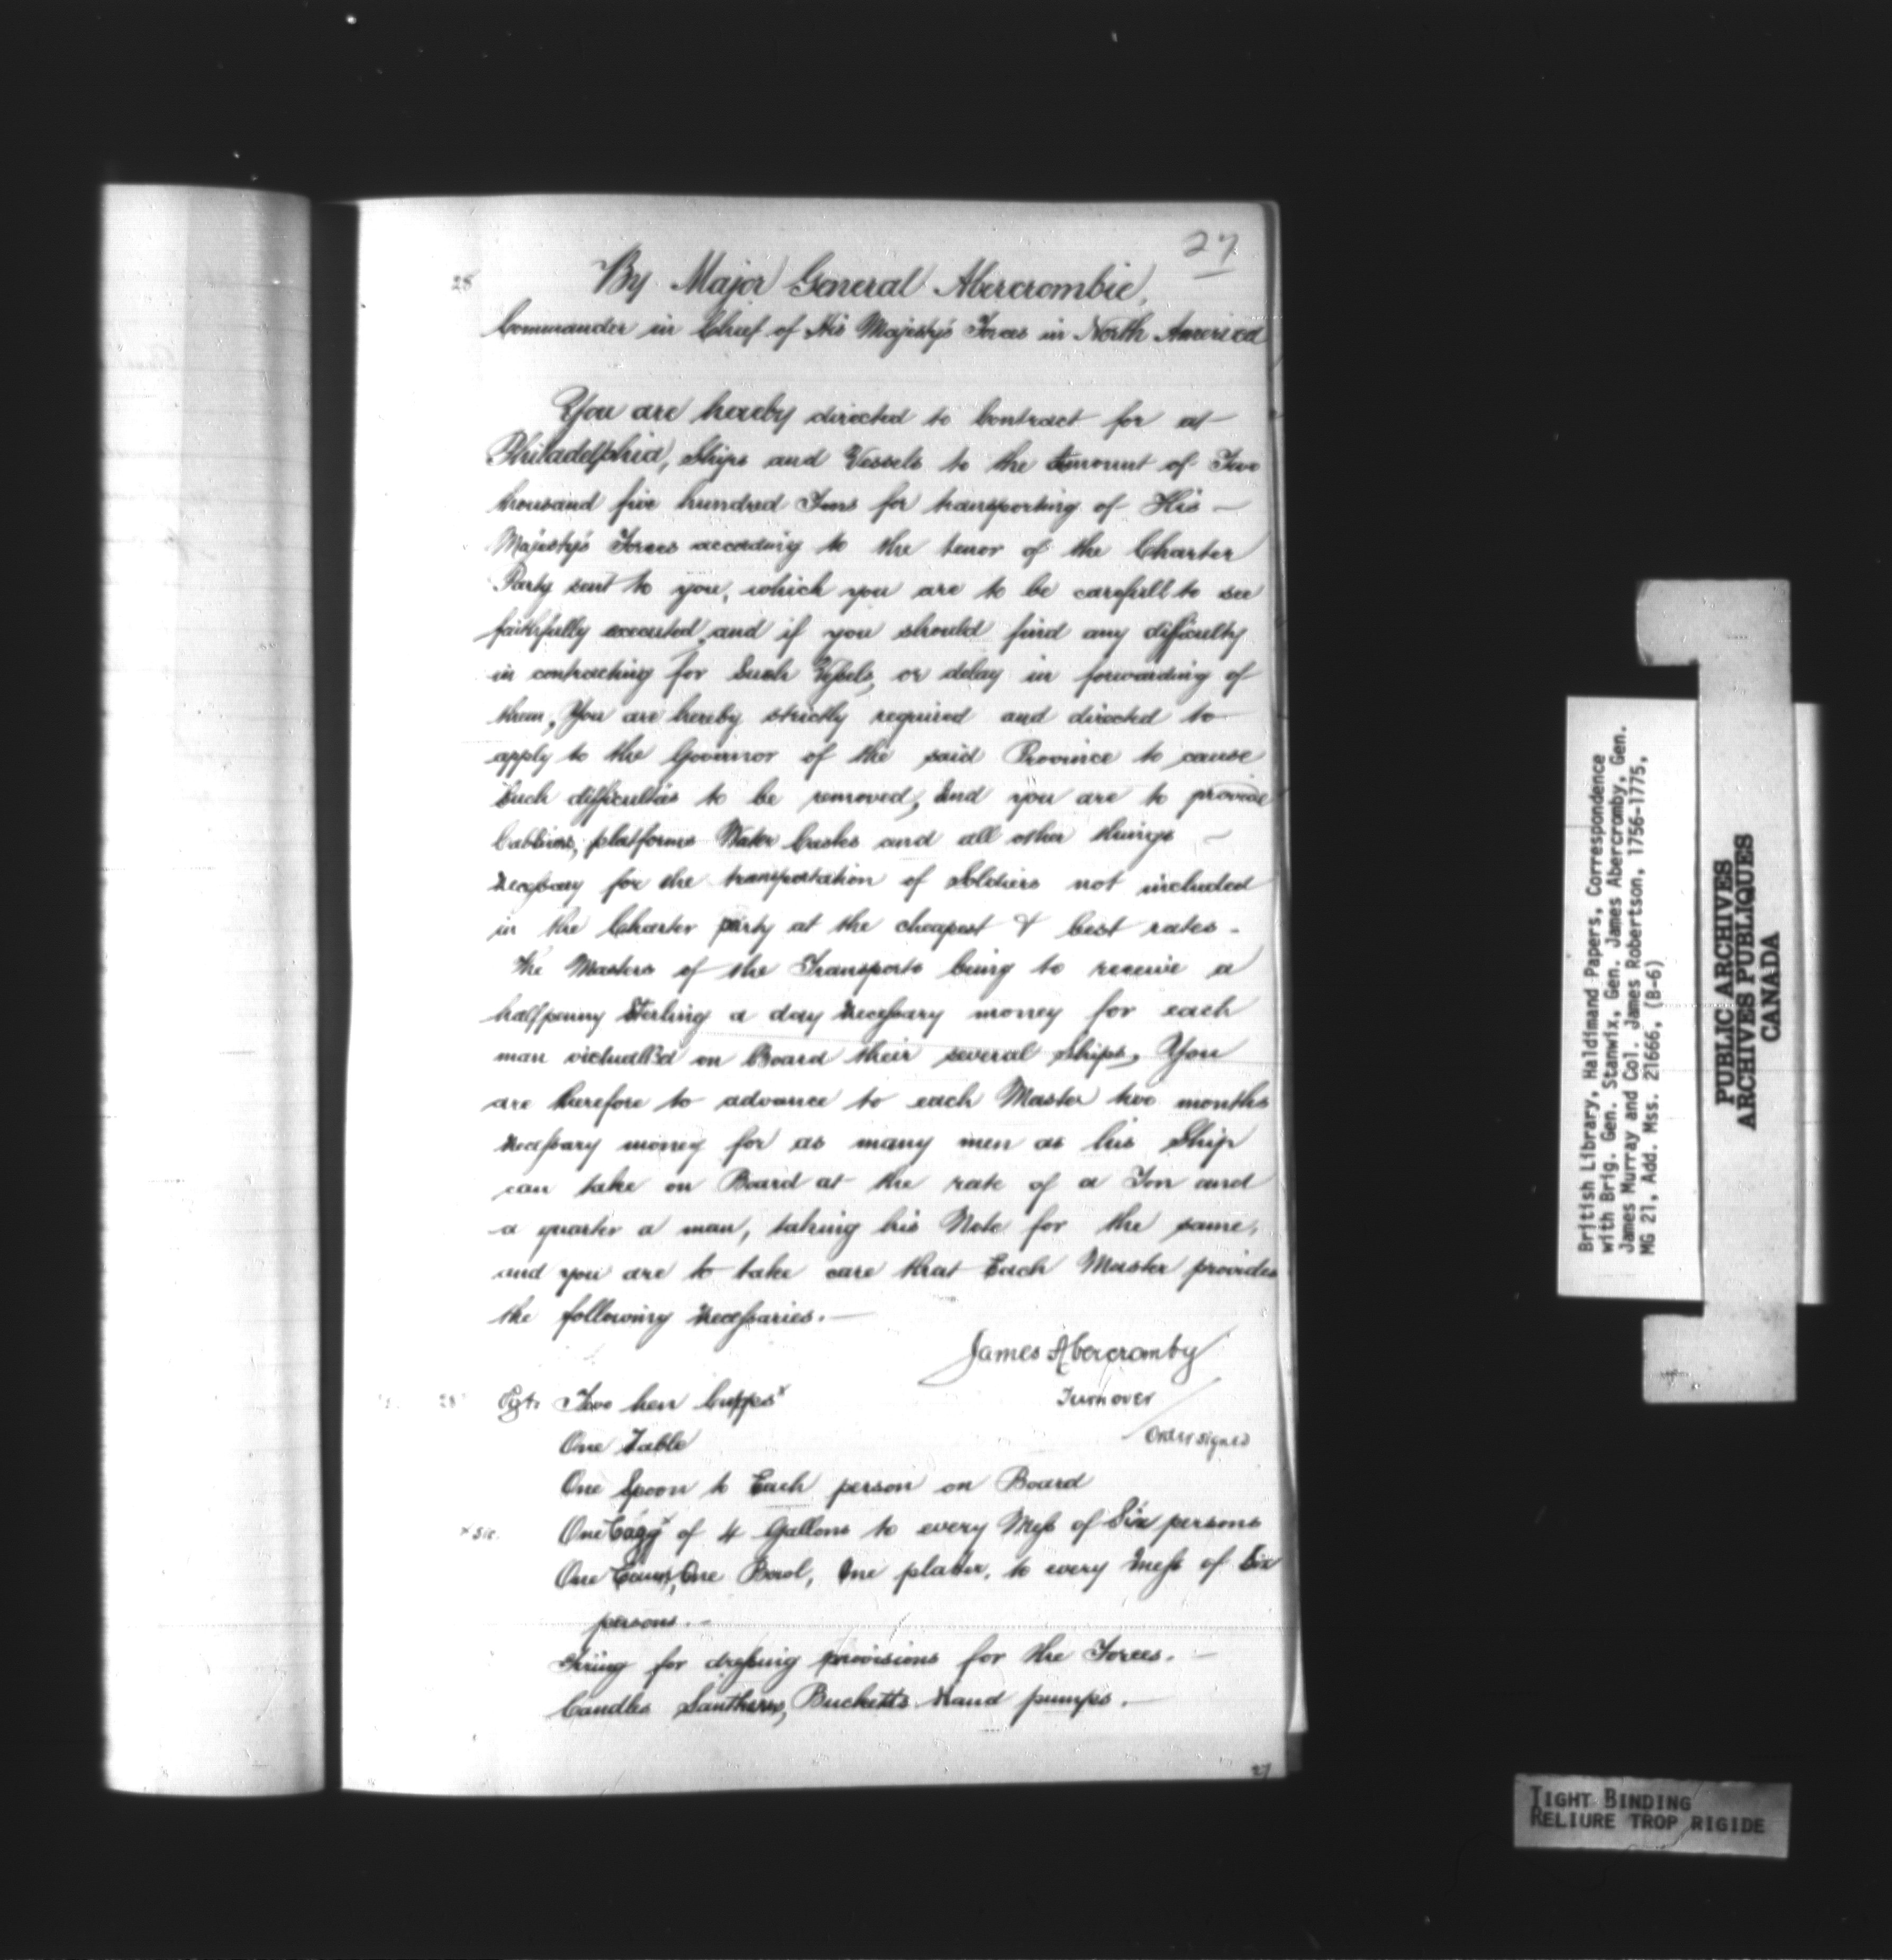 27
28
By Major General Abercrombie,
Commander in Chief of His Majesty's Forces in North America
You are hereby directed to Contract for at
Philadelphia, Ships and Vessels to the Amount of Two
thousand five hundred Tons for transporting of His
Majesty's Forces according to the tenor of the Charter
Party sent to you, which you are to be carefull to see
faithfully executed, and if you should find any difficulty
in contracting for Such Vessels, or delay in forwarding of
them, You are hereby strictly required and directed to
apply to the Governor of the said Province to cause
Such difficulties to be removed, And you are to provide
Cabbins, platforms Water Casks and all other things
Necessary for the transportation of Soldiers not included
in the Charter party at the cheapest & best rates -
The Masters of the Transports being to receive a
halfpenny Sterling a day Necessary money for each
man victualled on Board their several Ships, You
are therefore to advance to each Master two months
Necessary money for as many men as his Ship
can take on Board at the rate of a Ton and
a quarter a man, taking his Note for the same,
and you are to take care that Each Master provides
the following Necessaries. —
James Abercromby
28
Two hen Cuppes x
Turnover
One Table
Order signed
One Spoon to Each person on Board
x sic.
One Cagg x of 4 Gallons to every Mess of Six persons
One Cann, One Bowl, One platter, to every Mess of Six
persons. -
Firing for dressing provisions for the Forces. —
Candles Lanthorns, Bucketts Hand pumps. —
27
British Library, Haldimand Papers, Correspondence
with Brig. Gen. Stanwix, Gen. James Abercromby, Gen.
James Murray and Col. James Robertson, 1756-1775,
MG 21, Add. Mss. 21666, (B-6)
PUBLIC ARCHIVES
ARCHIVES PUBLIQUES
CANADA
TIGHT BINDING
RELIURE TROP RIGIDE